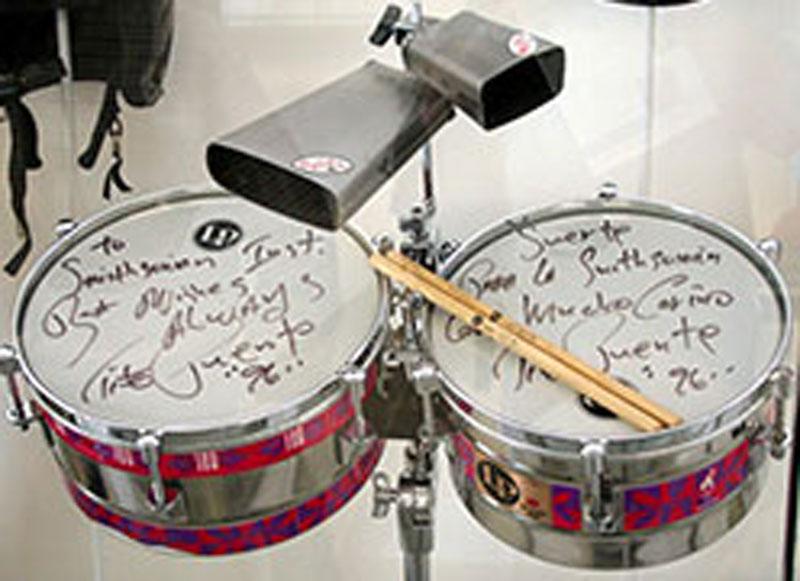 LP
to
Smithsonian Inst.
Best Wishes
Always
Tito Puente
"96"
Suerte
Para la Smithsonian
Con Mucho Cariño
Tito Puente
"96"
LP